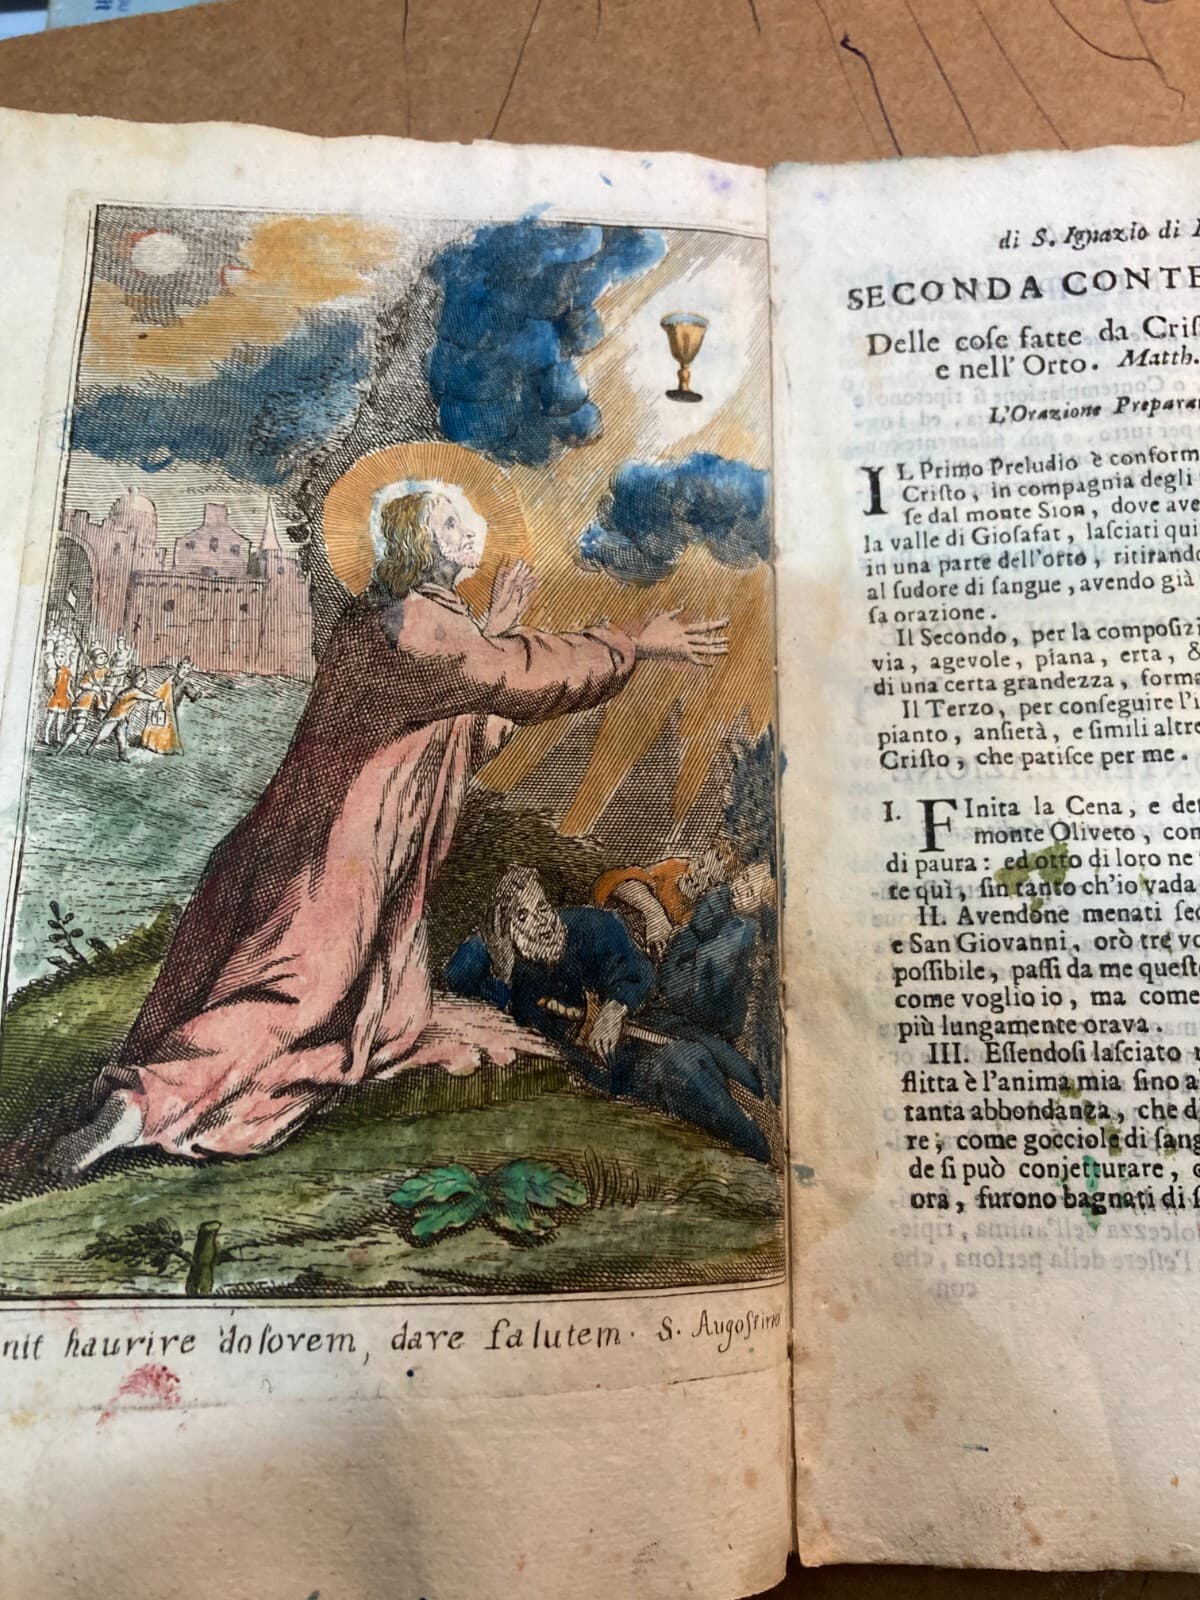 nit haurire dolorem, dare salutem. S. Augostino
di S. Ignazio di
SECONDA CONTE
Delle coſe fatte da Criſ
e nell' Orto. Matth.
L'Orazione Prepara
IL Primo Preludio è conform
Criſto, in compagnia degli
ſe dal monte Sion, dove ave
la valle di Gioſafat, laſciati qui
in una parte dell'orto, ritirando
al ſudore di ſangue, avendo già
ſa orazione.
Il Secondo, per la compoſizi
via, agevole, piana, erta, &
di una certa grandezza, forma
Il Terzo, per conſeguire l'i
pianto, anſietà, e ſimili altre
Criſto, che patiſce per me.
I. FInita la Cena, e de
monte Oliveto, con
di paura: ed otto di loro ne
te quì, ſin tanto ch'io vada
II. Avendone menati ſec
e San Giovanni, orò tre vo
poſſibile, paſſi da me queſto
come voglio io, ma come
più lungamente orava.
III. Eſſendoſi laſciato
flitta è l'anima mia ſino a
tanta abbondanza, che d
re; come gocciole di ſang
de ſi può conjetturare,
ora, furono bagnati di ſ